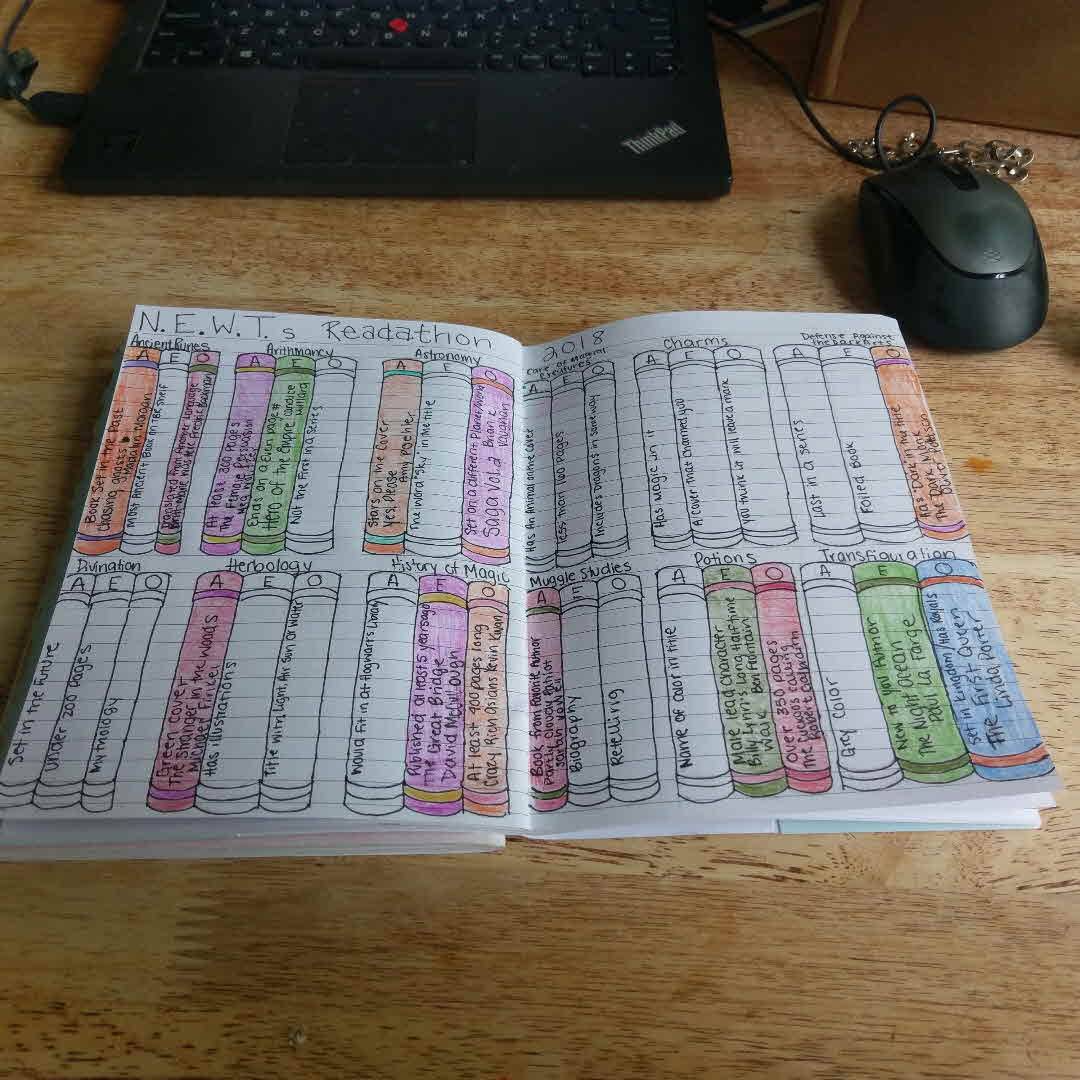 ThinkPad
N.E.W.T.s Readathon
2018
Ancient Runes
A
Book Set in the Past
Chasing Ghosts
Madalyn Morgan
E
Most Ancient Book on TBR Shelf
O
Translated from Another Language
Arithmancy
A
At least 300 pages
The Female Persuasion
Meg
E
Ends on a Even page #
Hero of the Empire Candice
Millard
O
Not the First in a series
Astronomy
A
Stars on the Cover
Yes Please
Amy Poehler
E
The word "Sky" in the title
O
Set on a different Planet/World
Saga Vol. 2 Brian K
Vaughan
Care of Magical
Creatures
A
Has An Animal on the Cover
E
less than 160 pages
O
Includes Dragons in some way
Charms
A
Has Magic in it
E
A cover that Charmed you
O
You think it will leave a mark
Defense Against
the Dark Arts
A
Last in a series
E
Foiled Book
O
Has Dark in the title
The Dark
David
Divination
A
Set in the Future
E
Under 200 pages
O
Mythology
Herbology
A
Green cover
The Stranger in the Woods
Michael Finkel
E
Has illustrations
O
Title with Light, Air, Sun or Water
History of Magic
A
Would Fit in at Hogwarts Library
E
Published at least 15 years ago
The Great Bridge
David McCullough
O
At least 400 pages long
Crazy Rich Asians Kevin Kwan
Muggle Studies
A
Book from Favorite Author
Partly Cloudy Patriot
Sarah Vowell
E
Biography
O
Retelling
Potions
A
Name of color in the title
E
Male lead character
Billy Lynn's Long Halftime
Walk Ben Fountain
O
Over 350 pages
The Cuckoo's Calling
Robert Galbraith
Transfiguration
A
Grey Color
E
New to you Author
The Night Ocean
Paul La Farge
O
Set in Kingdom/Has Royals
The First Queen
Linda Porter